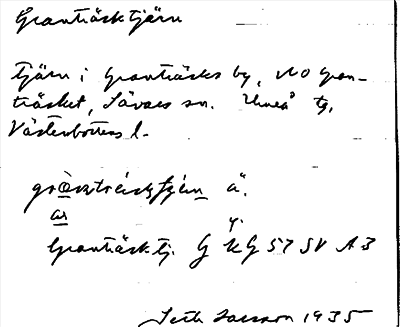 Granträsktjärn
Tjärn i Granträsks by, NO Gran-
träsket, Sävars sn. Umeå tg,
Västerbottens l.
ä.
av
Granträsktj. G K G 57 SV A 3
Seth Larsson 1935